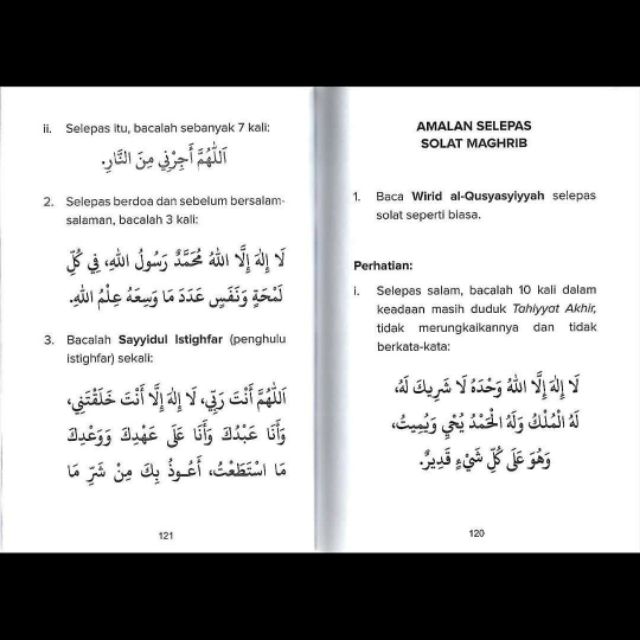 AMALAN SELEPAS
SOLAT MAGHRIB
1. Baca Wirid al-Qusyasyiyyah selepas
solat seperti biasa.
Perhatian:
i. Selepas salam, bacalah 10 kali dalam
keadaan masih duduk Tahiyyat Akhir,
tidak merungkaikannya dan tidak
berkata-kata:
لَا إِلٰهَ إِلَّا اللهُ وَحْدَهُ لَا شَرِيكَ لَهُ،
لَهُ الْمُلْكُ وَلَهُ الْحَمْدُ يُحْيِي وَيُمِيتُ،
وَهُوَ عَلَى كُلِّ شَيْءٍ قَدِيرٌ.
120
ii. Selepas itu, bacalah sebanyak 7 kali:
اَللّٰهُمَّ أَجِرْنِي مِنَ النَّارِ.
2. Selepas berdoa dan sebelum bersalam-
salaman, bacalah 3 kali:
لَا إِلٰهَ إِلَّا اللهُ مُحَمَّدٌ رَسُولُ اللهِ، فِي كُلِّ
لَمْحَةٍ وَنَفَسٍ عَدَدَ مَا وَسِعَهُ عِلْمُ اللهِ.
3. Bacalah Sayyidul Istighfar (penghulu
istighfar) sekali:
اَللّٰهُمَّ أَنْتَ رَبِّي، لَا إِلٰهَ إِلَّا أَنْتَ خَلَقْتَنِي،
وَأَنَا عَبْدُكَ وَأَنَا عَلَى عَهْدِكَ وَوَعْدِكَ
مَا اسْتَطَعْتُ، أَعُـوذُ بِكَ مِنْ شَرِّ مَا
121